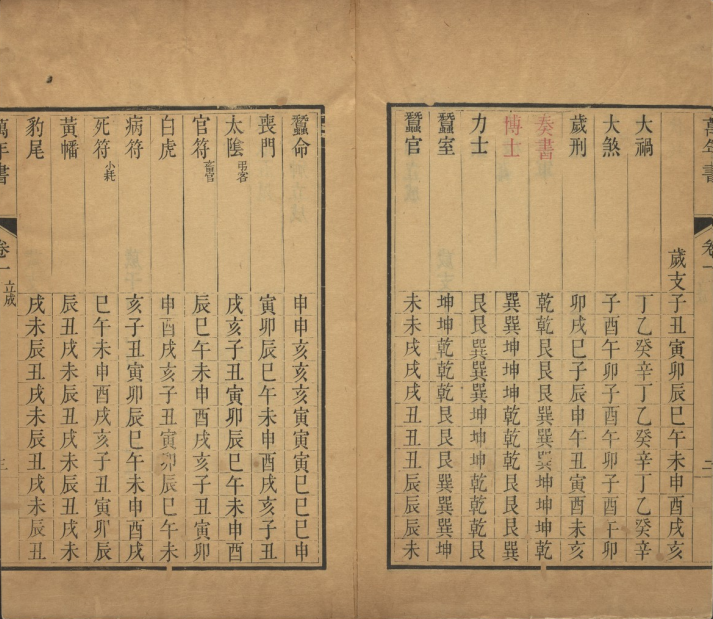 萬年書 卷一 二
歲支 子丑寅卯辰巳午未申酉戌亥
大禍 丁乙癸辛丁乙癸辛丁乙癸辛
大煞 子酉午卯子酉午卯子酉午卯
歲刑 卯戌巳子辰申午丑寅酉未亥
奏書 乾乾艮艮艮巽巽巽坤坤坤乾
博士 巽巽坤坤坤乾乾乾艮艮艮巽
力士 艮艮巽巽巽坤坤坤乾乾乾艮
蠶室 坤坤乾乾乾艮艮艮巽巽巽坤
蠶官 未未戌戌戌丑丑丑辰辰辰未
蠶命 申申亥亥亥寅寅寅巳巳巳申
喪門 寅卯辰巳午未申酉戌亥子丑
太陰 弔客 戌亥子丑寅卯辰巳午未申酉
官符 畜官 辰巳午未申酉戌亥子丑寅卯
白虎 申酉戌亥子丑寅卯辰巳午未
病符 亥子丑寅卯辰巳午未申酉戌
死符 小耗 巳午未申酉戌亥子丑寅卯辰
黃幡 辰丑戌未辰丑戌未辰丑戌未
豹尾 戌未辰丑戌未辰丑戌未辰丑
萬年書 卷一 立成 三